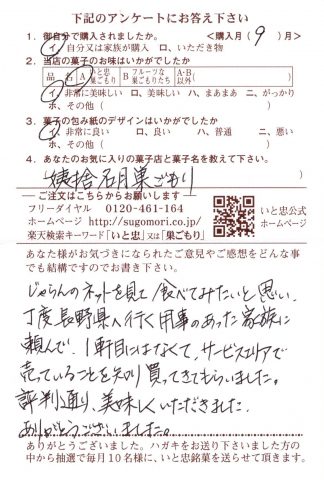 下記のアンケートにお答え下さい
1. 御自分で購入されましたか。 <購入月( 9 )月>
イ、自分又は家族が購入 ロ、いただき物
2. 当店の菓子のお味はいかがでしたか
品名 A いと忠巣ごもり B フルーツな巣ごもりたち A・B以外( )
イ、非常に美味しい ロ、美味しい ハ、まあまあ ニ、がっかり
ホ、その他( )
3. 菓子の包み紙のデザインはいかがでしたか
イ、非常に良い ロ、良い ハ、普通 ニ、悪い
ホ、その他( )
4. あなたのお気に入りの菓子店と菓子名を教えて下さい。
姨捨名月巣ごもり
ご注文はこちらからお願いします
フリーダイヤル 0120-461-164
ホームページ http://sugomori.co.jp/
楽天検索キーワード「いと忠」又は「巣ごもり」
いと忠公式
ホームページ
あなた様がお気づきになられたご意見やご感想をどんな事
でも結構ですのでお書き下さい。
じゃらんのネットを見て食べてみたいと思い、
丁度長野県へ行く用事のあった家族に
頼んで、1軒目にはなくて、サービスエリアで
売っていることを知り買ってきてもらいました。
評判通り、美味しくいただきました。
ありがとうございました。
ありがとうございました。ハガキをお送り下さいました方の
中から抽選で毎月10名様に、いと忠銘菓を送らせて頂きます。